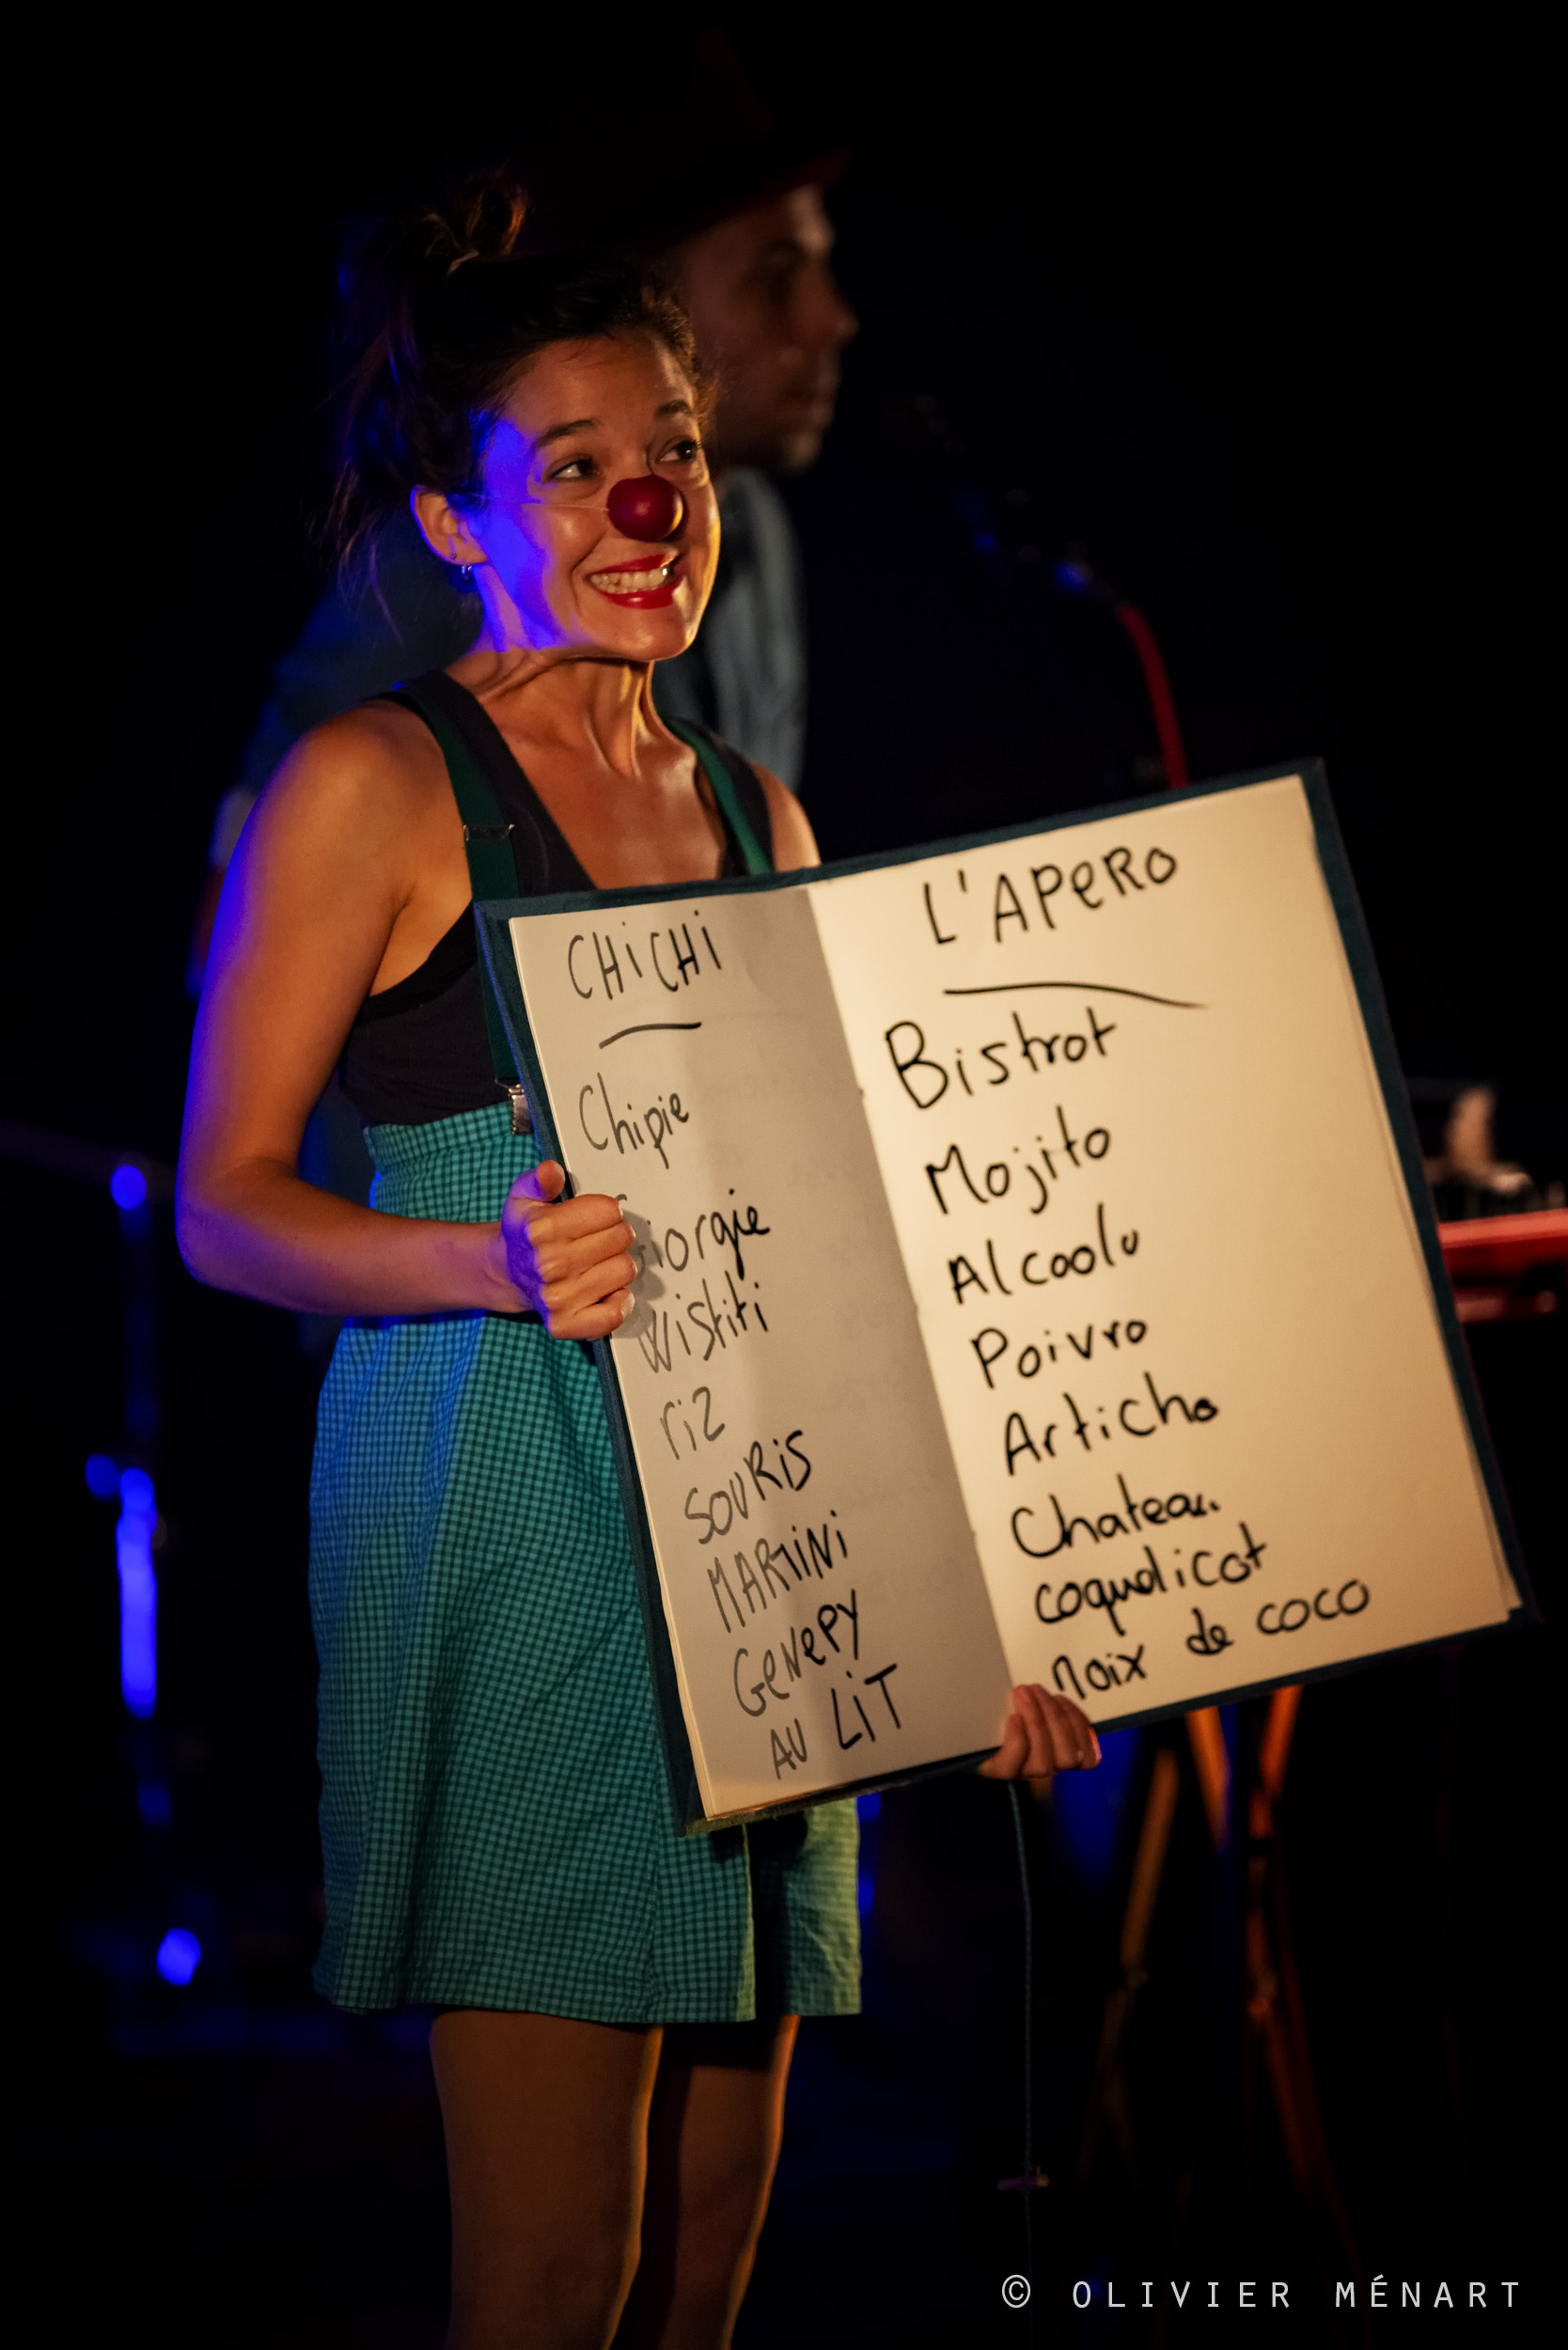 CHiCHi
Chipie
Wistiti
riz
SOURIS
MARTiNi
GeNePY
AU LiT
L'APeRO
Bistrot
Mojito
Alcoolo
Poivro
Articho
Chateau
coquelicot
noix de coco
© OLIVIER MÉNART